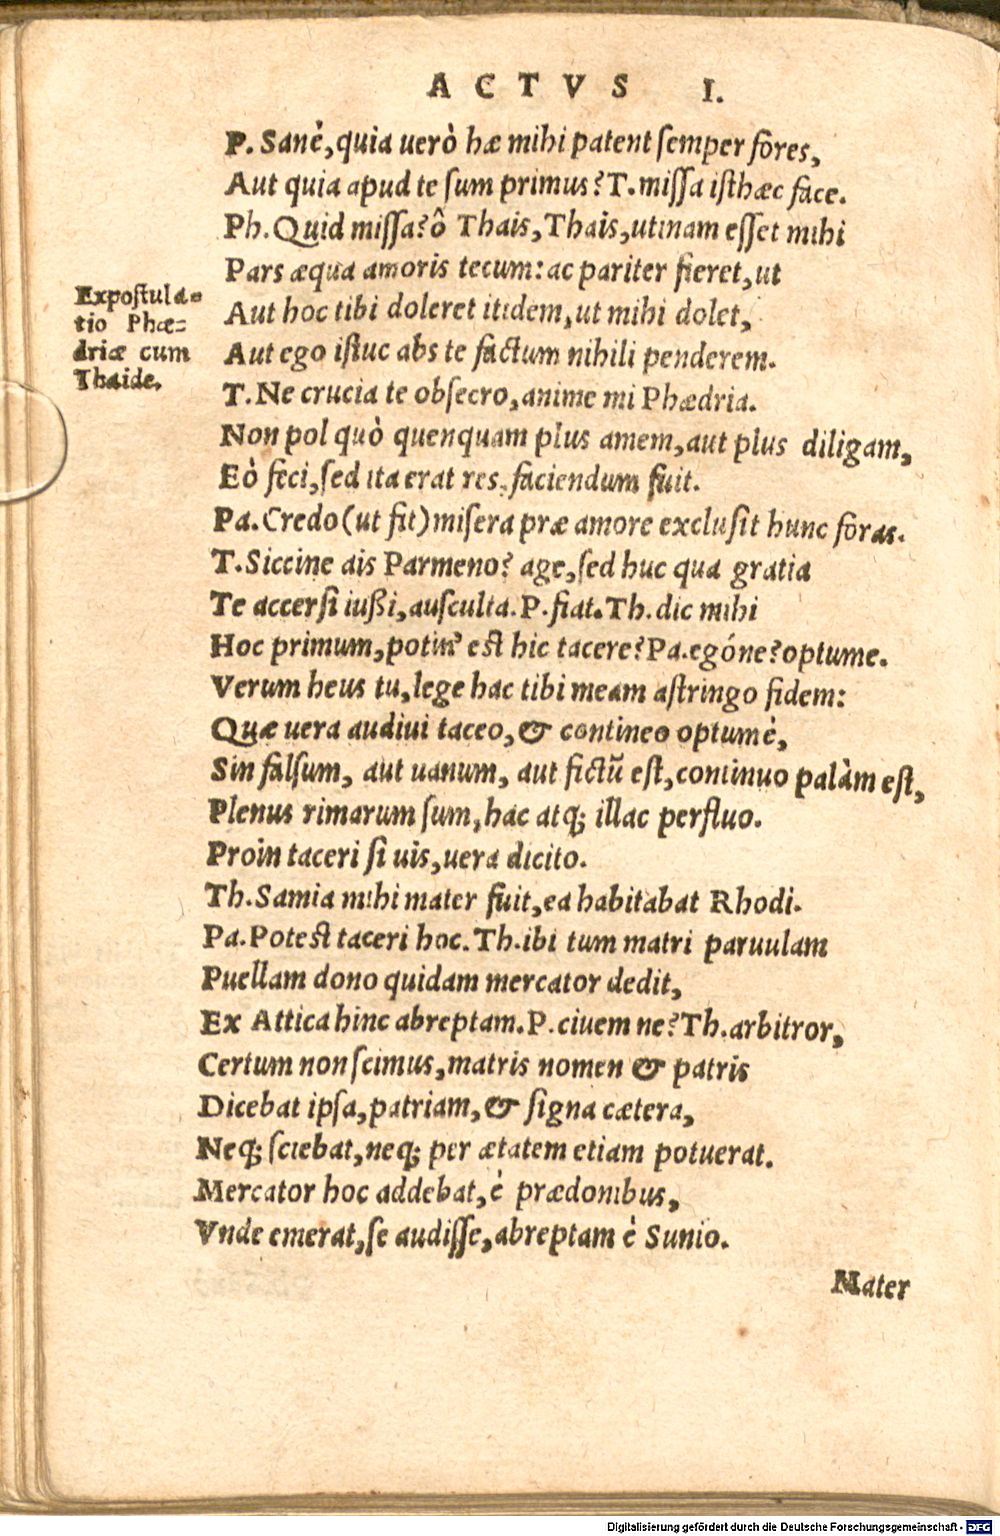 ACTVS I.
P. Sanè, quia uerò hæ mihi patent ſemper fores,
Aut quia apud te ſum primus? T. miſſa iſthæc face.
Ph. Quid miſſa? ô Thais, Thais, utinam eſſet mihi
Pars æqua amoris tecum: ac pariter fieret, ut
Aut hoc tibi doleret itidem, ut mihi dolet,
Aut ego iſtuc abs te factum nihili penderem.
Expoſtula-
tio Phæ-
driæ cum
Thaide.
T. Ne crucia te obſecro, anime mi Phædria.
Non pol quò quenquam plus amem, aut plus diligam,
Eò feci, ſed ita erat res, faciendum fuit.
Pa. Credo (ut fit) miſera præ amore excluſit hunc foras.
T. Siccine ais Parmeno? age, ſed huc qua gratia
Te accerſi iußi, auſculta. P. fiat. Th. dic mihi
Hoc primum, potin' eſt hic tacere? Pa. egóne? optume.
Verum heus tu, lege hac tibi meam aſtringo fidem:
Quæ uera audiui taceo, & contineo optumè,
Sin falſum, aut uanum, aut fictũ eſt, continuo palàm eſt,
Plenus rimarum ſum, hac atq; illac perfluo.
Proin taceri ſi uis, uera dicito.
Th. Samia mihi mater fuit, ea habitabat Rhodi.
Pa. Poteſt taceri hoc. Th. ibi tum matri paruulam
Puellam dono quidam mercator dedit,
Ex Attica hinc abreptam. P. ciuem ne? Th. arbitror,
Certum non ſcimus, matris nomen & patris
Dicebat ipſa, patriam, & ſigna cætera,
Neq; ſciebat, neq; per ætatem etiam potuerat.
Mercator hoc addebat, è prædonibus,
Vnde emerat, ſe audiſſe, abreptam è Sunio.
Mater
Digitalisierung gefördert durch die Deutsche Forschungsgemeinschaft - DFG